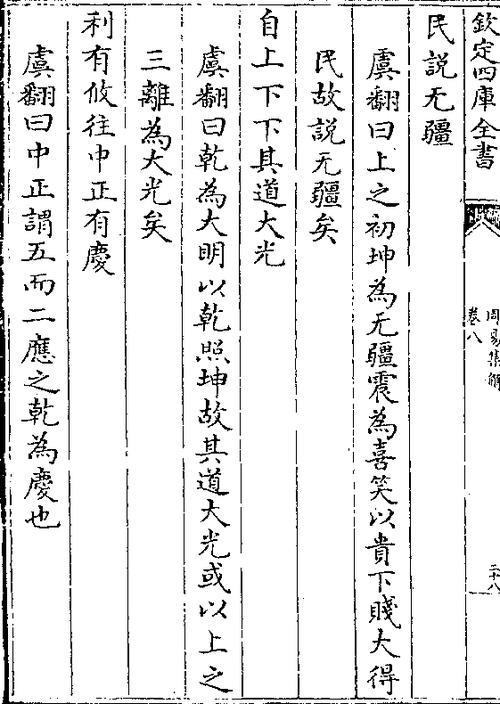 欽定四庫全書
周易集解
卷八
三十八
民說无疆
虞翻曰上之初坤為无疆震為喜笑以貴下賤大得
民故說无疆矣
自上下下其道大光
虞翻曰乾為大明以乾照坤故其道大光或以上之
三離為大光矣
利有攸往中正有慶
虞翻曰中正謂五而二應之乾為慶也